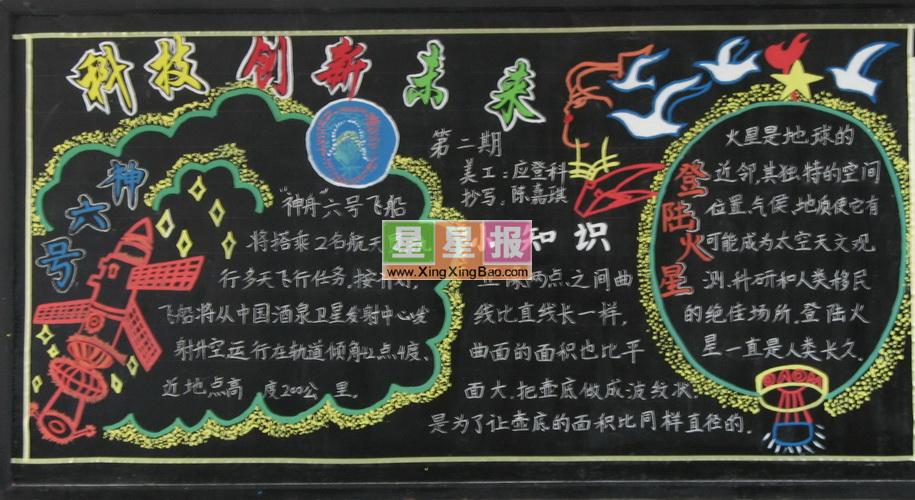 科技创新未来
神六号
"神舟"六号飞船
将搭乘2名航天
行多天飞行任务.按
飞船将从中国酒泉卫星发射中心发
射升空运行在轨道倾角42点4度、
近地点高 度200公里.
第二期
美工:应登科
抄写:陈嘉琪
知识
两点之间曲
线比直线长一样,
曲面的面积也比平
面大.把壶底做成波纹状.
是为了让壶底的面积比同样直径的.
登陆火星
火星是地球的
近邻,其独特的空间
位置、气侯、地质使它有
可能成为太空天文观
测、科研和人类移民
的绝佳场所.登陆火
星一直是人类长久.
星星报
www.XingXingBao.com